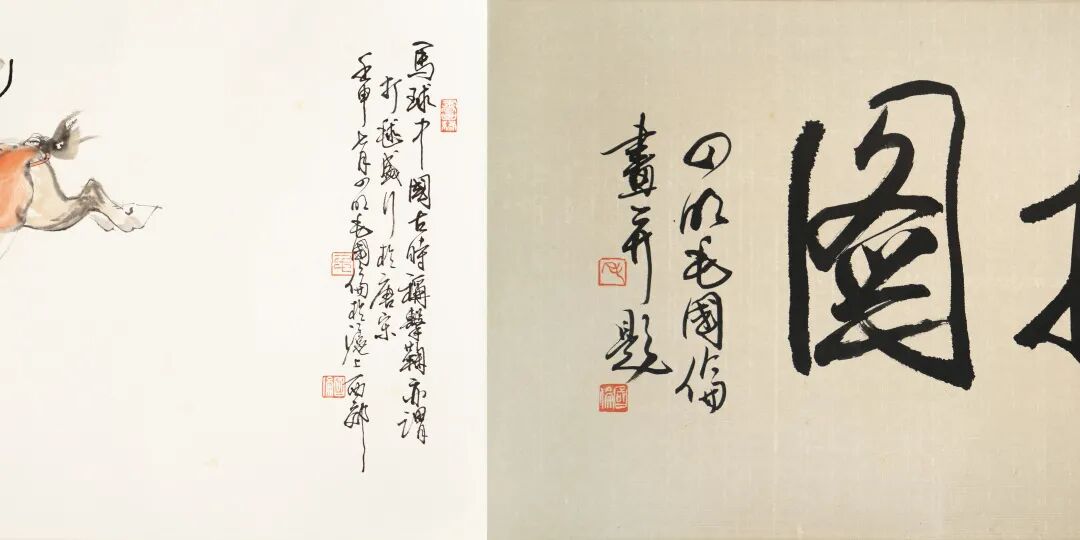 馬球中國古時稱擊鞠亦謂
打毬盛行於唐宋
壬申七月四明毛國倫於滬上西部
圖
四明毛國倫
畫并題